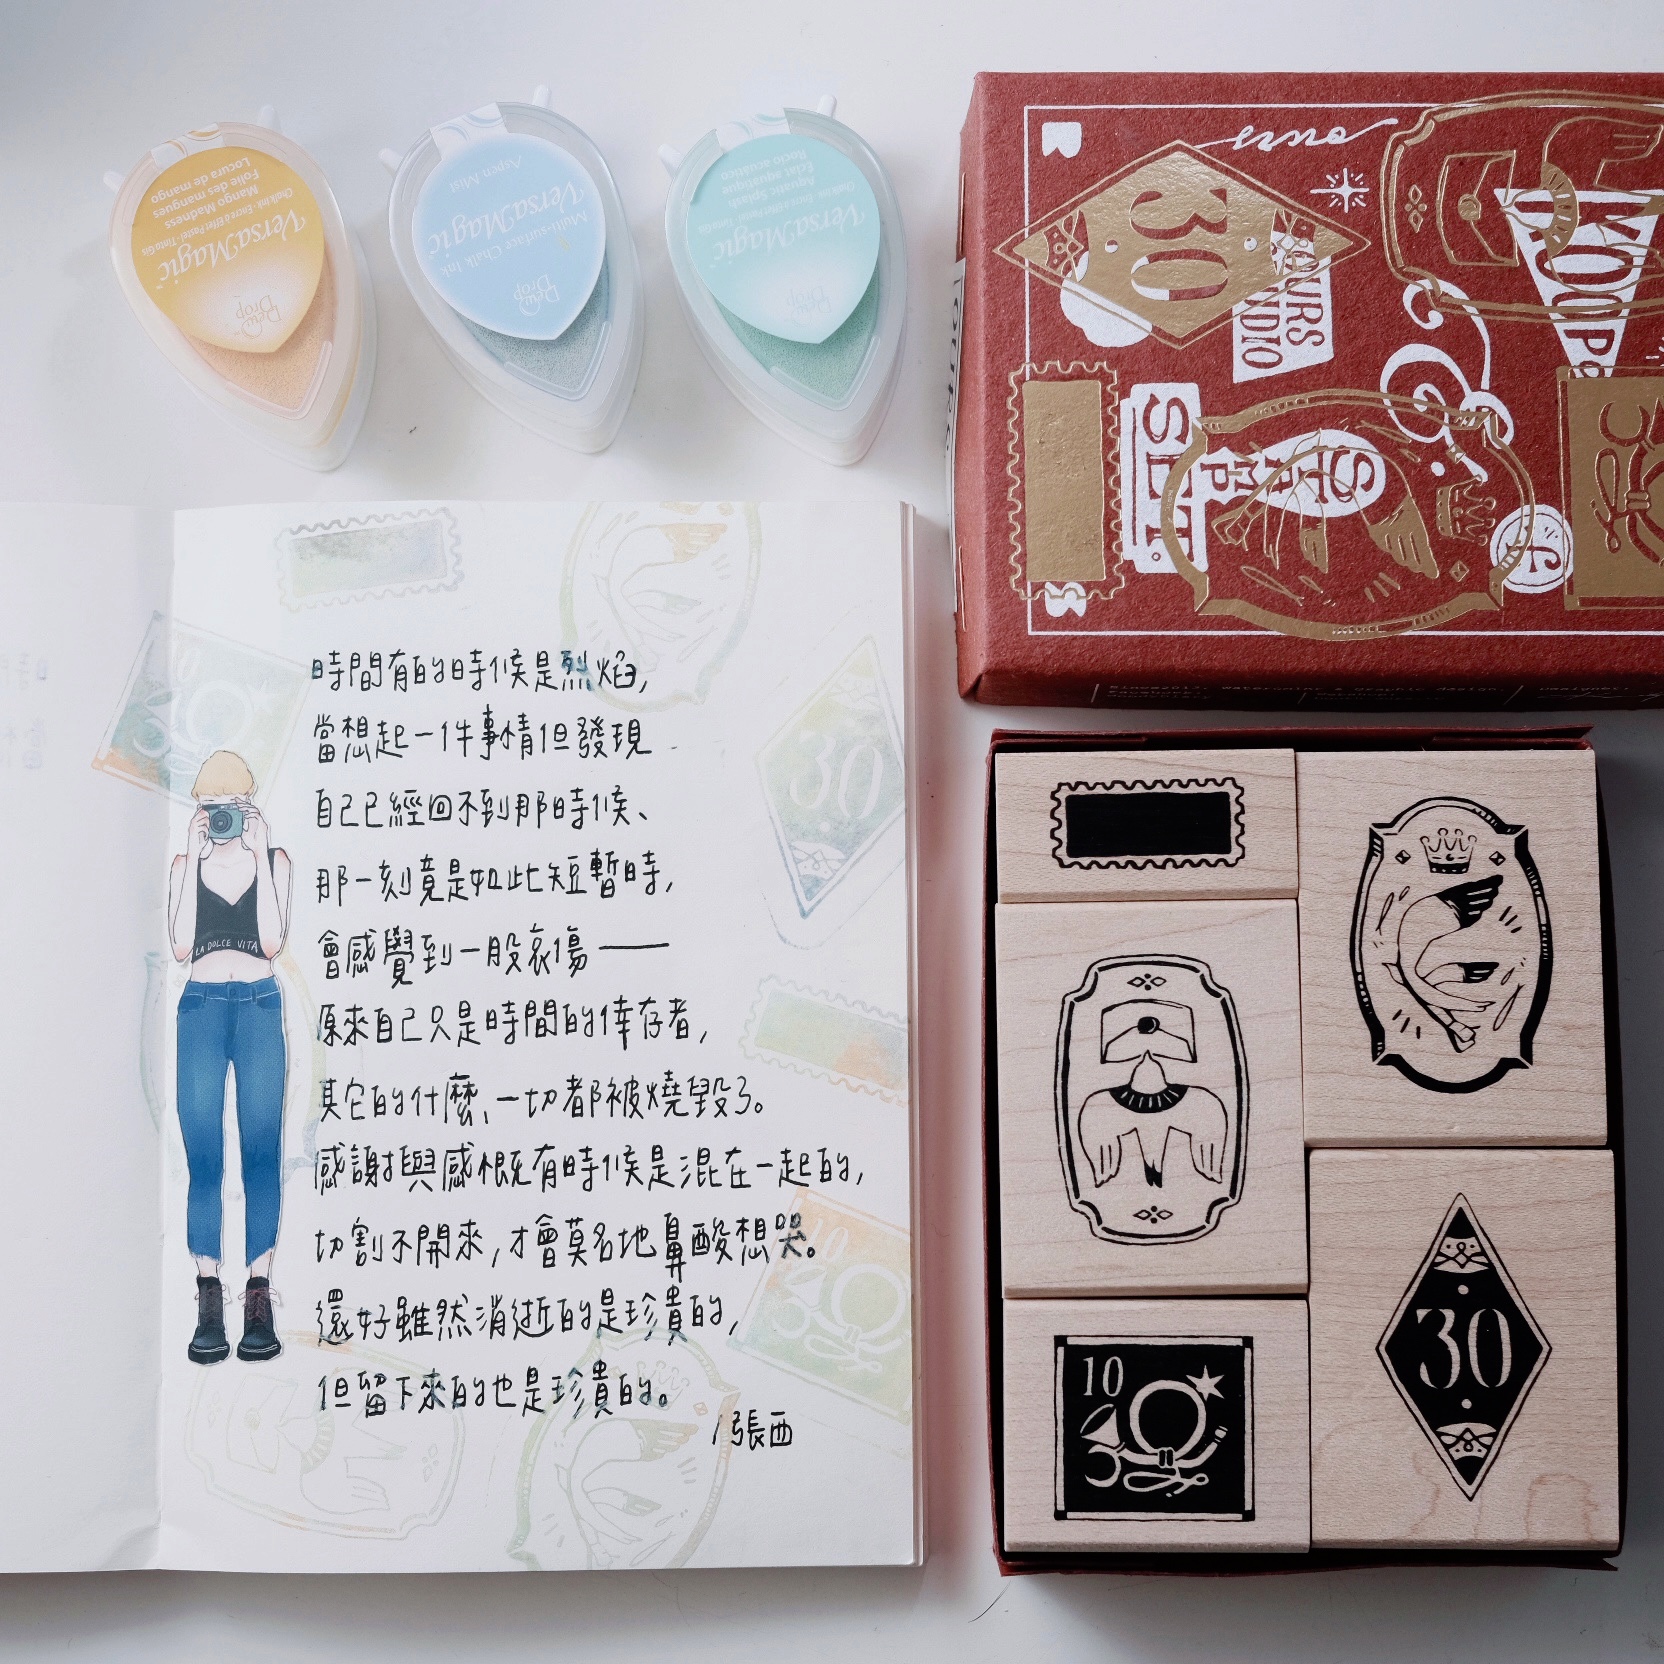 Mango Madness
Folie des mangues
Locura de mango
Chalk Ink · Encre à Effet Pastel · Tinta Gis
VersaMagic
Dew Drop
Aspen Mist
VersaMagic
Multi-surface Chalk Ink
Dew Drop
Aquatic Splash
Éclat aquatique
Rocío acuático
VersaMagic
Dew Drop
30
STAMP
SET.
LA DOLCE VITA
時間有的時候是烈焰,
當想起一件事情但發現
自己已經回不到那時候、
那一刻竟是如此短暫時,
會感覺到一股哀傷——
原來自己只是時間的倖存者,
其它的什麼、一切都被燒毀了。
感謝與感慨有時候是混在一起的,
切割不開來,才會莫名地鼻酸想哭。
還好雖然消逝的是珍貴的,
但留下來的也是珍貴的。
/張西
30
10
10
30